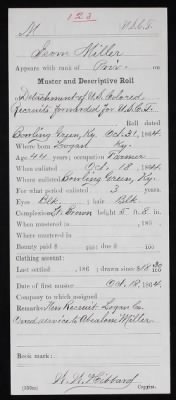 123
M U.S.C.T.
Leon Miller
Appears with rank of Priv. on
Muster and Descriptive Roll
Detachment of U.S. Colored
Recruits forwarded for U.S.C.T.
Roll dated
Bowling Green, Ky. Oct. 31, 1864.
Where born Logan Ky.
Age 44 years; occupation Farmer
When enlisted Oct. 18, 1864.
Where enlisted Bowling Green, Ky.
For what period enlisted 3 years.
Eyes Blk.; hair Blk.
Complexion Lt. Brown height 5 ft. 8 in.
When mustered in , 186 .
Where mustered in
Bounty paid $ 100; due $ 100
Clothing account:
Last settled , 186 ; drawn since $18 100
Date of first muster Oct. 18, 1864
Company to which assigned
Remarks: New Recruit Logan Co.
Owed service to Absalom Miller
Book mark:
W. W. Hibbard
(339m) Copyist.